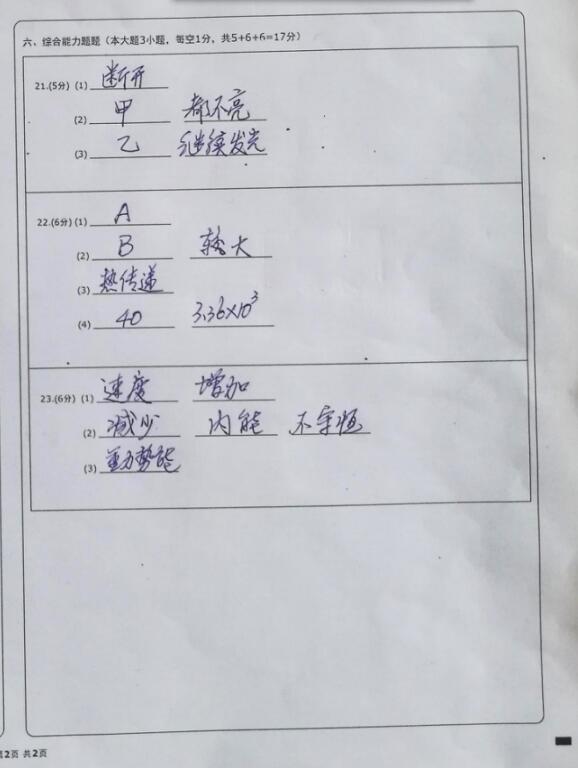 六、综合能力题题（本大题3小题，每空1分，共5+6+6=17分）
21.(5分) (1) 断开
(2) 甲 都不亮
(3) 乙 继续发光
22.(6分) (1) A
(2) B 较大
(3) 热传递
(4) 40 3.36×10³
23.(6分) (1) 速度 增加
(2) 减少 内能 不守恒
(3) 重力势能
第2页 共2页